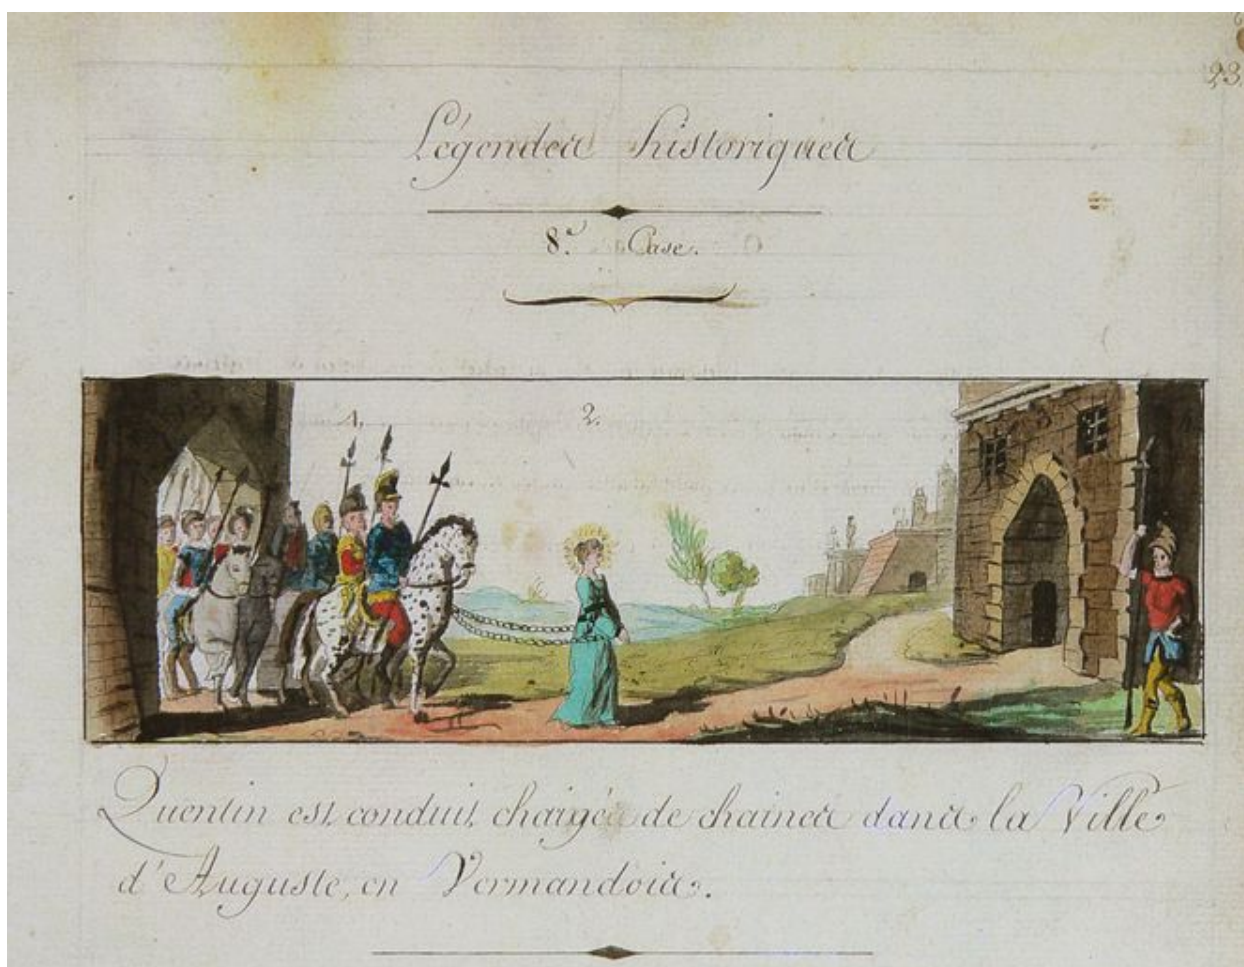 23
Légendes historiques
8.e Case.
1. 2. 3
Quentin est conduit, chargé de chaines dans la Ville
d'Auguste, en Vermandois.